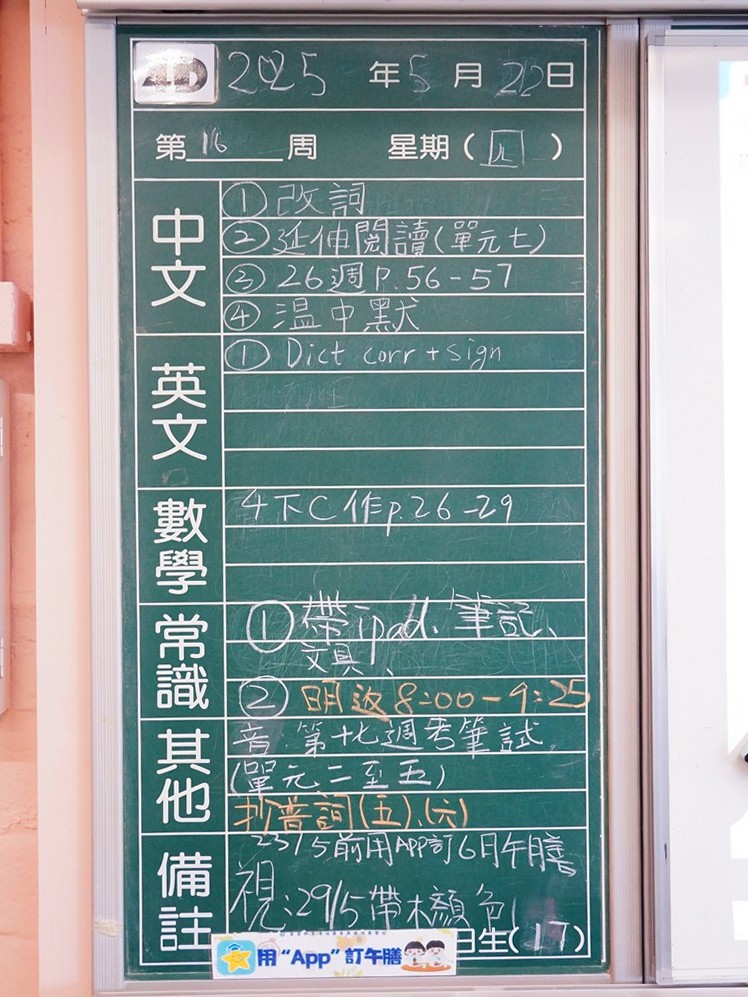 4D 2025 年 5 月 22 日
第 16 周 星期 ( 四 )
中文
① 改詞
② 延伸閱讀(單元七)
③ 26週 P.56-57
④ 溫中默
英文
① Dict corr + sign
數學
4下C作p.26-29
常識
① 帶ipad、筆記、
文具、
② 明返8:00-9:25
其他
音:第十七週考筆試
(單元二至五)
抄普詞(五)、(六)
備註
23/5前用APP訂6月午膳
視:29/5帶木顏色
日生(17)
用“App”訂午膳